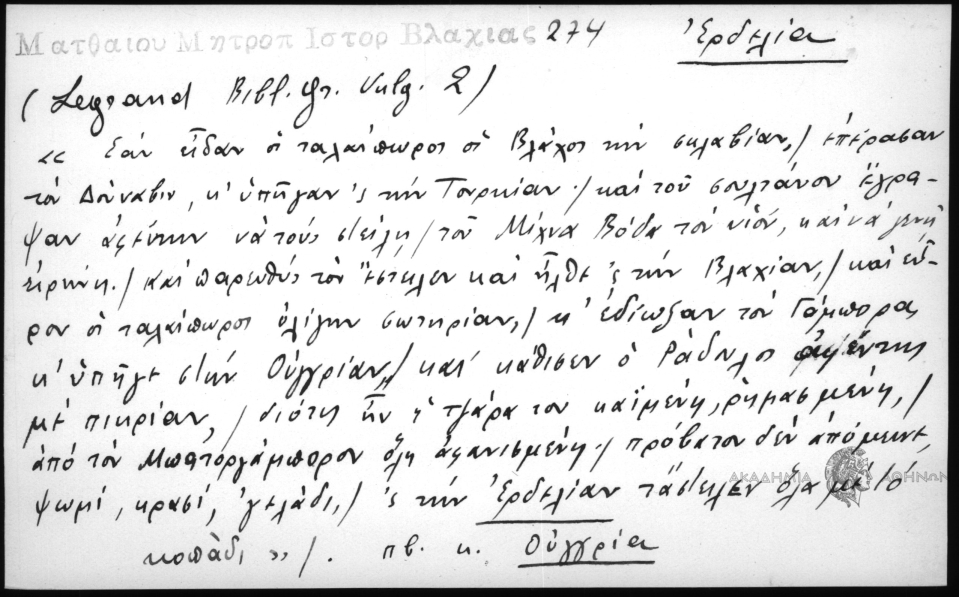 Ματθαιου Μητροπ Ιστορ Βλαχιας 274 Ἐρδελία
(Legrand Bibl. gr. Vulg. 2)
« Ἐὰν εἶδαν οἱ ταλαίπωροι οἱ Βλάχοι τὴν σκλαβίαν,/ ἐπέρασαν
τὸν Δούναβιν, κ' ὑπῆγαν 'ς τὴν Τουρκίαν·/ καὶ τοῦ σουλτάνου ἔγρα-
ψαν ἀφέντην νὰ τοὺς στείλῃ/ τοῦ Μίχνα Βόδα τὸν υἱόν, καὶ νὰ γενῇ
εἰρήνη./ Καὶ παρευθὺς τὸν ἔστειλεν καὶ ἦλθε 'ς τὴν Βλαχίαν,/ καὶ εὗ-
ρον οἱ ταλαίπωροι ὀλίγην σωτηρίαν,/ κ' ἐδίωξαν τὸν Γάμπορα,
κ' ὑπῆγε στὴν Οὑγγρίαν,/ καὶ κάθισεν ὁ Ράδουλος ἀφέντης
μὲ πικρίαν,/ διότις ἦν ἡ τζάρα του καϊμένη, ρημασμένη,/
ἀπὸ τὸν Μπατοργάμπορον ὅλη ἀφανισμένη·/ πρόβατον δὲν ἀπόμεινε,
ψωμί, κρασί, 'γελάδι,/ 'ς τὴν Ἐρδελίαν τἄστειλεν ὅλα μὲ τὸ
κοπάδι »/. πβ. κ. Οὑγγρία
ΑΚΑΔΗΜΙΑ ΑΘΗΝΩΝ